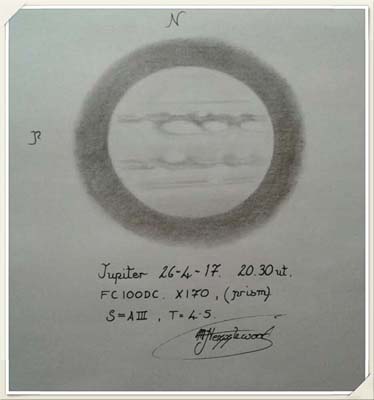 N
P
Jupiter 26-4-17. 20.30ut.
FC100DC. X170, (prism)
S=AIII, T=4-5.